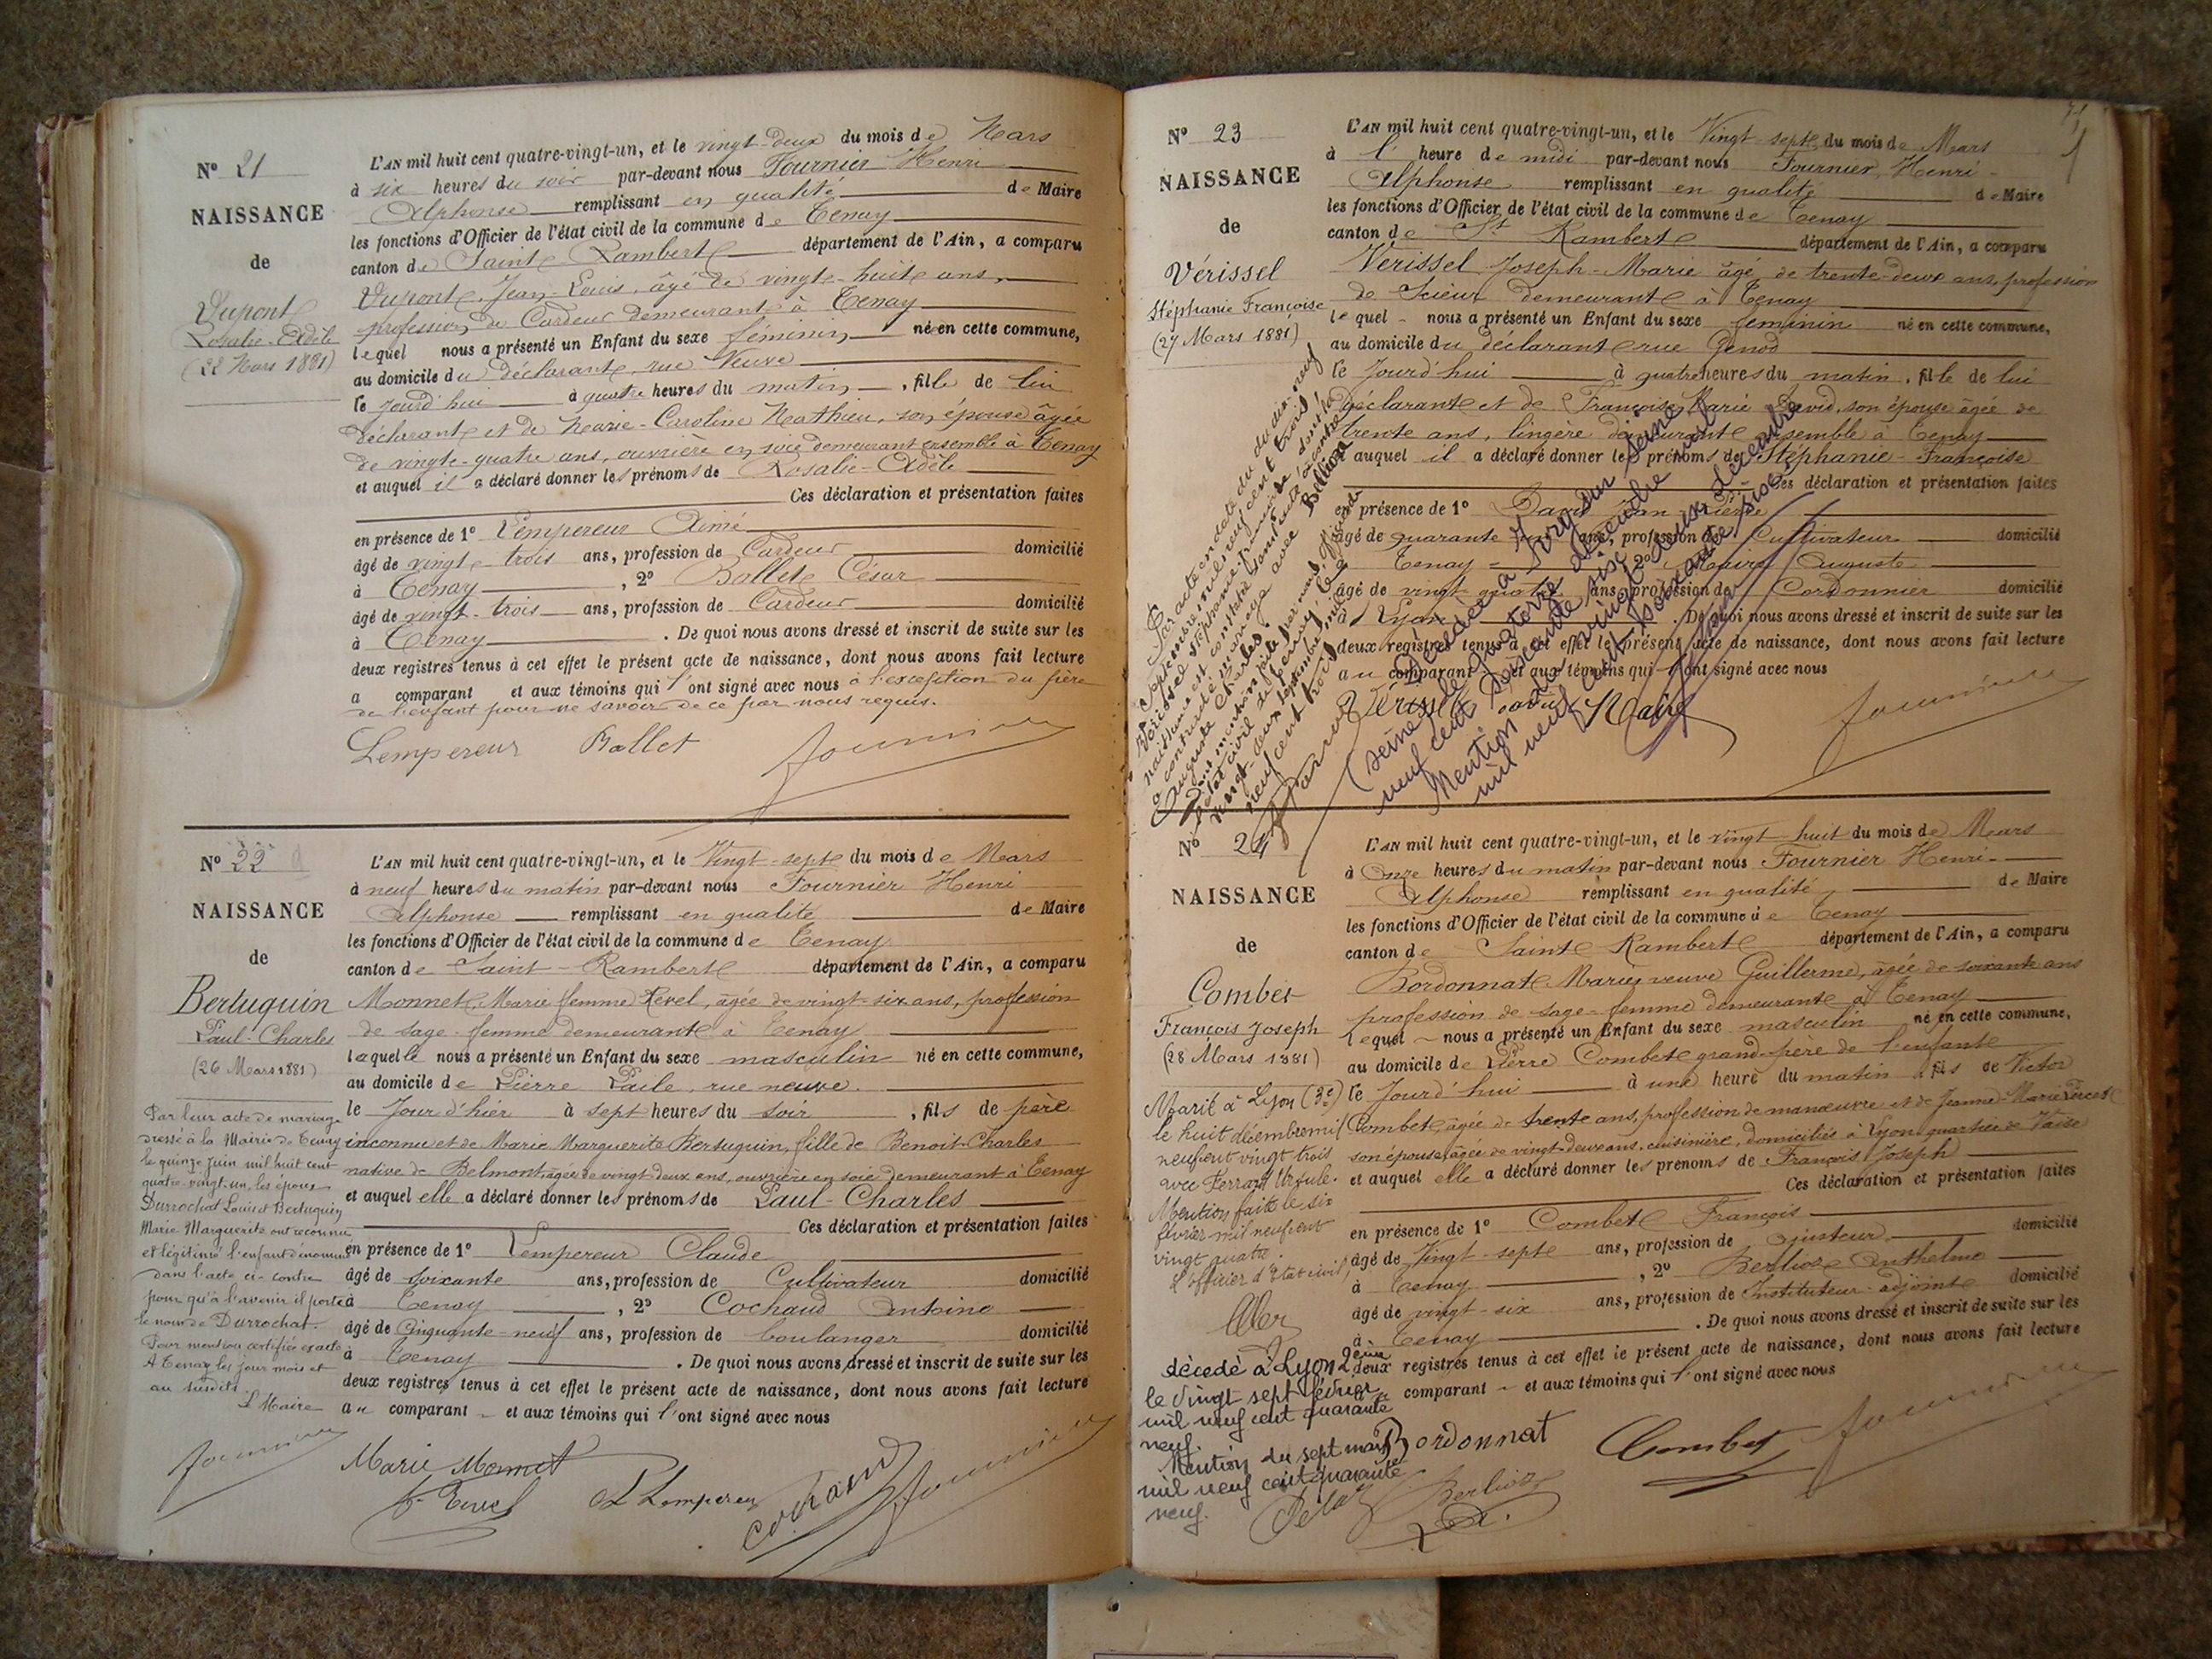 N° 21
NAISSANCE
de
Dupont
Rosalie-Adèle
(22 Mars 1881)
L'AN mil huit cent quatre-vingt-un, et le vingt-deux du mois de Mars
à six heures du soir par-devant nous Fournier Henri
Alphonse remplissant en qualité de Maire
les fonctions d'Officier de l'état civil de la commune de Tenay
canton de Saint Rambert département de l'Ain, a comparu
Dupont, Jean-Louis, âgé de vingt-huit ans,
profession de Cardeur demeurant à Tenay
lequel nous a présenté un Enfant du sexe féminin né en cette commune,
au domicile du déclarant, rue Neuve
le jourd'hui à quatre heures du matin, fille de lui
déclarant et de Marie-Caroline Mathieu, son épouse âgée
de vingt-quatre ans, ouvrière en soie demeurant ensemble à Tenay
et auquel il a déclaré donner les prénoms de Rosalie-Adèle
Ces déclaration et présentation faites
en présence de 1° Lempereur Aimé
âgé de vingt-trois ans, profession de Cardeur domicilié
à Tenay, 2° Ballet César
âgé de vingt-trois ans, profession de Cardeur domicilié
à Tenay. De quoi nous avons dressé et inscrit de suite sur les
deux registres tenus à cet effet le présent acte de naissance, dont nous avons fait lecture
a comparant et aux témoins qui l'ont signé avec nous à l'exception du père
de l'enfant pour ne savoir de ce par nous requis.
Lempereur Ballet Fournier
N° 22
NAISSANCE
de
Bertuquin
Paul-Charles
(26 Mars 1881)
Par leur acte de mariage
dressé à la Mairie de Tenay
le quinze Juin mil huit cent
quatre-vingt-un, les époux
Durrochat Louis et Bertuquin
Marie Marguerite ont reconnu
et légitimé l'enfant dénommé
dans l'acte ci-contre
pour qu'à l'avenir il porte
le nom de Durrochat.
Pour mention certifiée exacte
A Tenay les jour mois et
an susdits.
Le Maire
Fournier
L'AN mil huit cent quatre-vingt-un, et le Vingt-sept du mois de Mars
à neuf heures du matin par-devant nous Fournier Henri
Alphonse remplissant en qualité de Maire
les fonctions d'Officier de l'état civil de la commune de Tenay
canton de Saint-Rambert département de l'Ain, a comparu
Monnet, Marie femme Revel, âgée de vingt-six ans, profession
de sage-femme demeurant à Tenay
laquelle nous a présenté un Enfant du sexe masculin né en cette commune,
au domicile de Pierre Paile, rue neuve.
le Jour d'hier à sept heures du soir, fils de père
inconnu et de Marie Marguerite Bertuquin, fille de Benoit-Charles
native de Belmont, âgée de vingt deux ans, ouvrière en soie demeurant à Tenay
et auquel elle a déclaré donner les prénoms de Paul-Charles
Ces déclaration et présentation faites
en présence de 1° Lempereur Claude
âgé de soixante ans, profession de Cultivateur domicilié
à Tenay, 2° Cochaud Antoine
âgé de Cinquante-neuf ans, profession de boulanger domicilié
à Tenay. De quoi nous avons dressé et inscrit de suite sur les
deux registres tenus à cet effet le présent acte de naissance, dont nous avons fait lecture
au comparant et aux témoins qui l'ont signé avec nous
Marie Monnet
f. Revel Lempereur Cochaud Fournier
N° 23
NAISSANCE
de
Vérissel
Stéphanie Françoise
(27 Mars 1881)
L'AN mil huit cent quatre-vingt-un, et le Vingt-sept du mois de Mars
à l' heure de midi par-devant nous Fournier, Henri
Alphonse remplissant en qualité de Maire
les fonctions d'Officier de l'état civil de la commune de Tenay
canton de St Rambert département de l'Ain, a comparu
Vérissel Joseph-Marie âgé de trente-deux ans, profession
de Scieur demeurant à Tenay
lequel nous a présenté un Enfant du sexe féminin né en cette commune,
au domicile du déclarant rue Genod
le Jourd'hui à quatre heures du matin, fille de lui
déclarant et de Françoise Marie David, son épouse âgée de
trente ans, lingère demeurant ensemble à Tenay
et auquel il a déclaré donner les prénoms de Stéphanie-Françoise
Ces déclaration et présentation faites
en présence de 1° David Jean Pierre
âgé de quarante ans, profession de Cultivateur domicilié
à Tenay, 2° Maire Auguste
âgé de vingt-quatre ans, profession de Cordonnier domicilié
à Lyon. De quoi nous avons dressé et inscrit de suite sur les
deux registres tenus à cet effet le présent acte de naissance, dont nous avons fait lecture
au comparant et aux témoins qui l'ont signé avec nous
Vérissel David Maire Fournier
Décédée à Ivry sur Seine
(Seine) le quatorze décembre mil
neuf cent soixante six
Mention du vingt deux décembre
mil neuf cent soixante six
N° 24
NAISSANCE
de
Combet
François Joseph
(28 Mars 1881)
Marié à Lyon (3e)
le huit décembre mil
neuf cent vingt trois
avec Ferrand Ursule.
Mention faite le six
février mil neuf cent
vingt quatre.
L'officier d'Etat civil,
décédé à Lyon 2ème
le vingt sept février
mil neuf cent quarante
neuf.
Mention du sept mars
mil neuf cent quarante
neuf.
L'AN mil huit cent quatre-vingt-un, et le vingt-huit du mois de Mars
à Onze heures du matin par-devant nous Fournier Henri
Alphonse remplissant en qualité de Maire
les fonctions d'Officier de l'état civil de la commune de Tenay
canton de Saint Rambert département de l'Ain, a comparu
Bordonnat Marie, veuve Guillerme, âgée de soixante ans
profession de sage-femme demeurant à Tenay
lequel nous a présenté un Enfant du sexe masculin né en cette commune,
au domicile de Pierre Combet grand-père de l'enfant
le Jourd'hui à une heure du matin, fils de Victor
Combet, âgé de trente ans, profession de manœuvre et de Jeanne-Marie
son épouse âgée de vingt-deux ans, cuisinière, domiciliés à Lyon quartier de Vaise
et auquel elle a déclaré donner les prénoms de François Joseph
Ces déclaration et présentation faites
en présence de 1° Combet François
âgé de Vingt-sept ans, profession de ajusteur domicilié
à Tenay, 2° Berlioz Anthelme
âgé de vingt-six ans, profession de Instituteur-adjoint domicilié
à Tenay. De quoi nous avons dressé et inscrit de suite sur les
deux registres tenus à cet effet le présent acte de naissance, dont nous avons fait lecture
a comparant et aux témoins qui l'ont signé avec nous
Bordonnat Combet Fournier
Berlioz